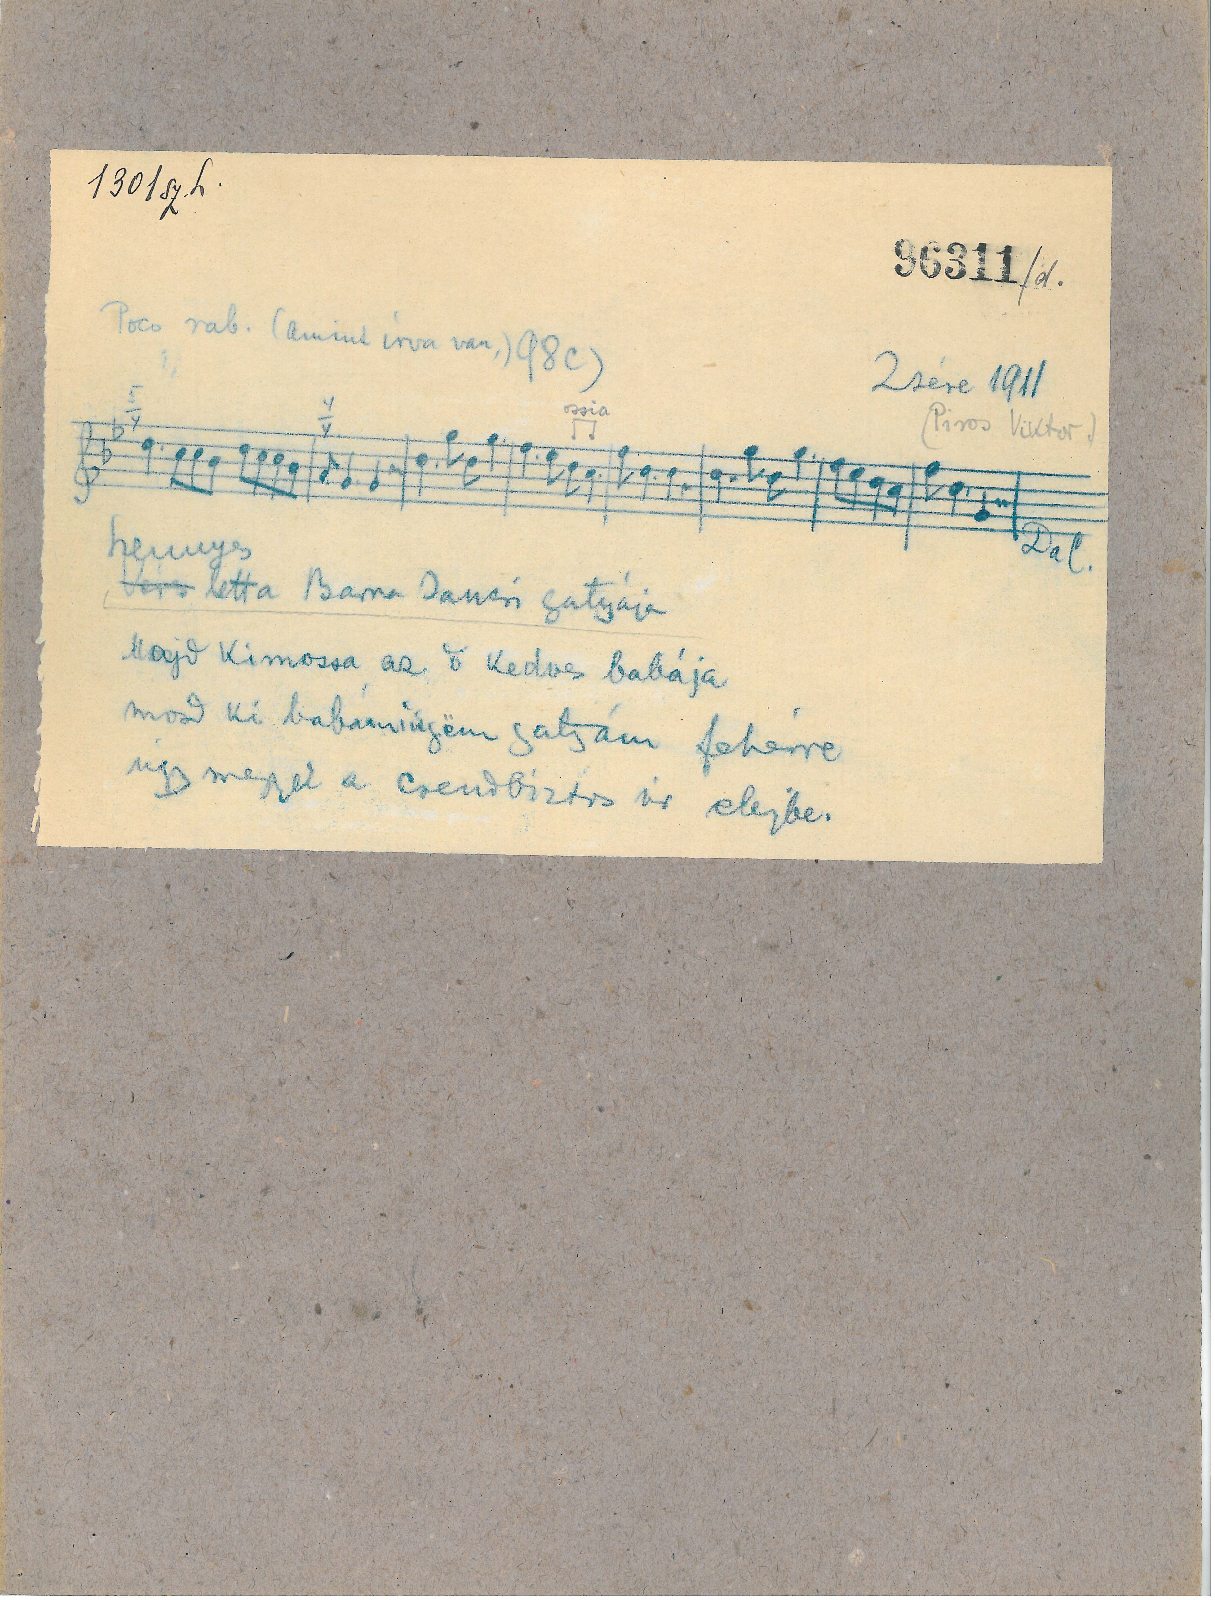 1301 sz. h.
96311/d.
Poco rub. (amint írva van,) 98c)
Zsére 1911
(Piros Viktor.)
5/4
4/4
ossia
Dal.
hennyes
Véres letta Barna Jancsi gatyája
Majd kimossa az ő kedves babája
mosd ki babám üngëm gatyám fehérre
úgy megyek a csendbiztos úr elejbe.